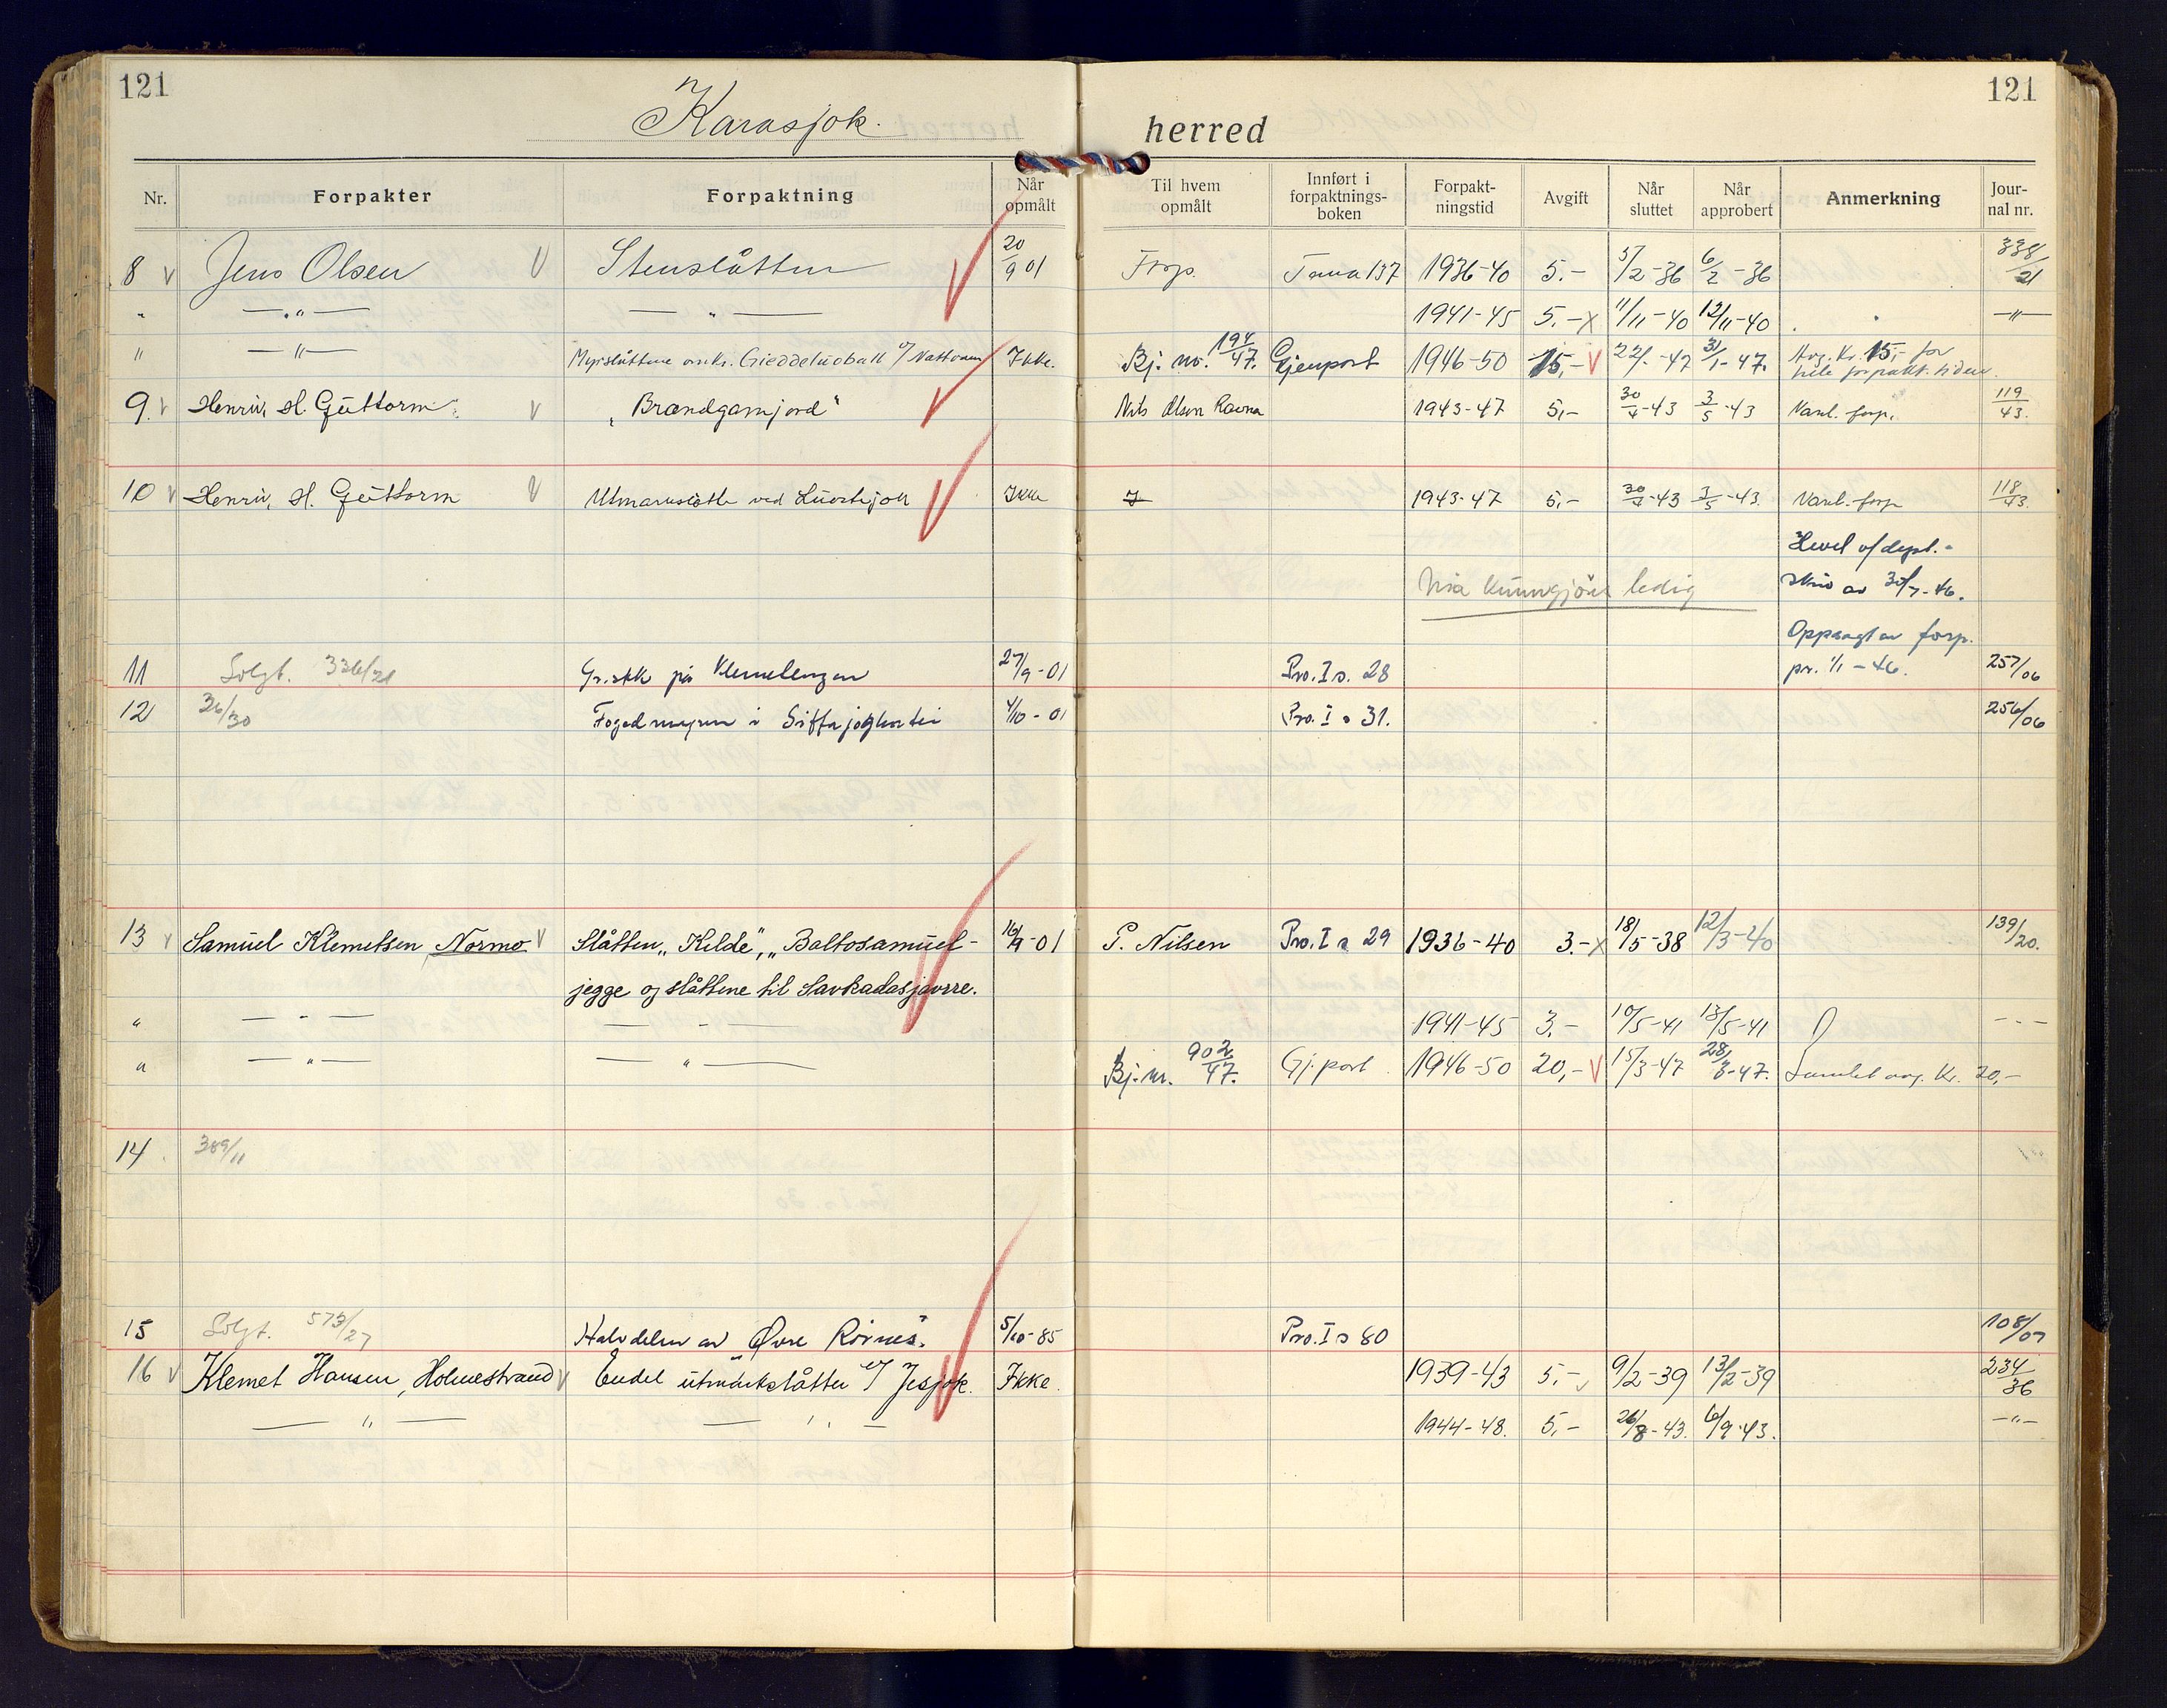 121
121
Karasjok.
herred
Nr. Forpakter Forpaktning Når opmålt Til hvem opmålt Innført i forpaktnings-boken Forpakt-ningstid Avgift Når sluttet Når approbert Anmerkning Jour-nal nr.
8 V Jens Olsen V Stenslåtten 20/9 01 Forp. Tana 137 1936-40 5.- 5/2-36 6/2-36 338/21
" —„— — " — 1941-45 5.-x 11/11-40 12/11-40 —"—
" —"— Myrslåttene Gieddeluoball v/ Ikke. Bj. nr. 194/47. Gjenpart 1946-50 15,- V 22/1-47 31/1-47. Avg. Kr. 15,- for
hele forpakt. tiden.
9. V Henrik H. Guttorm V „Brændgamjord" Nils Olsen Ravna 1943-47 5,- 30/4-43 3/5-43 Vanl. forp. 119/43.
10 V Henrik H. Guttorm V Utmarksslåtte ved Luostejok Ikke 1943-47 5,- 30/4-43 3/5-43. Vanl. forp 118/43.
Hevel v/ dept.-
Må kunngjøres ledig skriv av 30/7-46.
Oppsagt av forp.
11 Solgt. 336/21 Gr.stk på Klemetengen 27/9-01 Pro. I s. 28 pr. 1/1-46. 257/06
12 36/30 Fogedmyren i 4/10-01 Pro. I s 31. 256/06
13 V Samuel Klemetsen Normo V Slåtten „Kilde", „Baltosamuel- 16/9-01 P. Nilsen Pro. I s 29 1936-40 3.-x 18/5-38 12/3-40 139/20.
jegge og slåttene til Savkadasjavrre.
" — " — — " — 1941-45 3.- 10/5-41 13/5-41 - - -
" — " — — " — Bj. nr. 902/47. Gj.part 1946-50 20,- V 15/3-47 28/3-47. Samlet avg. Kr. 20,-
14 389/11
15 Solgt. 573/27 Halvdelen av „Øvre Rivnes". 5/10-85 Pro. I s 80 108/07
16 V Klemet Hansen, Holmestrand V Endel utmarkslåtter v/ Jesjok. Ikke. 1939-43 5.- 9/2-39 13/2-39 234/36
— " — — " — 1944-48. 5,- 26/8-43. 6/9-43. —"—